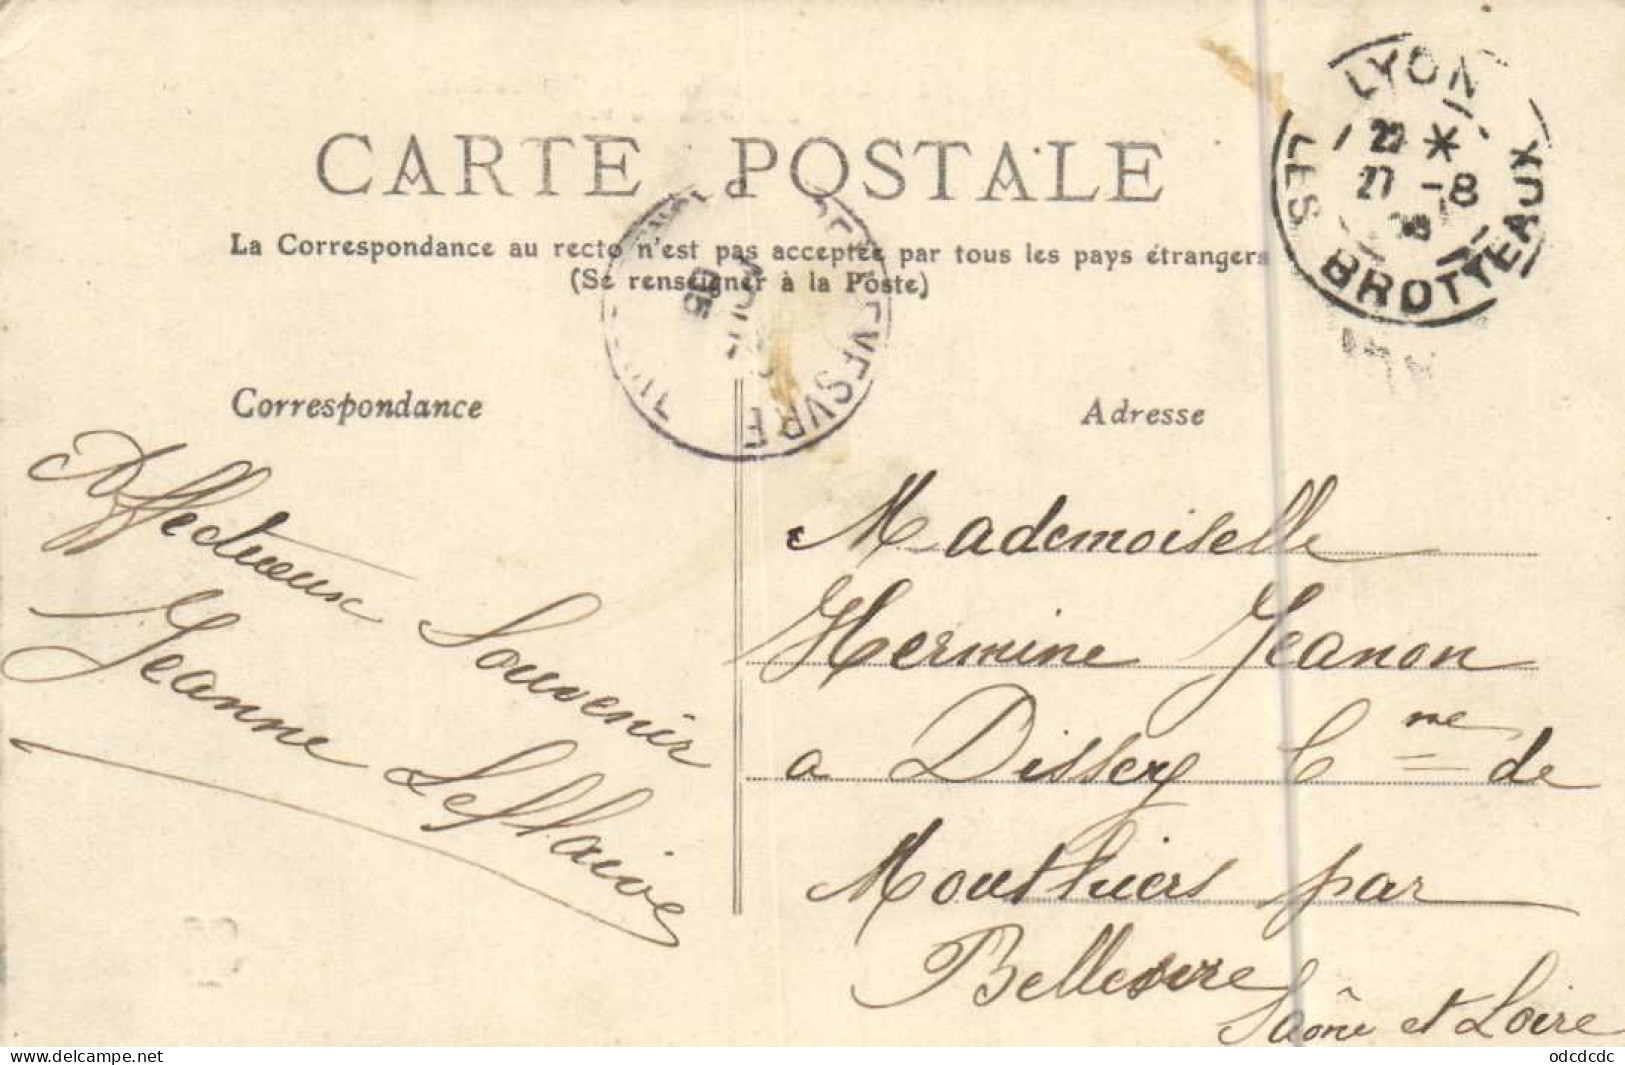 CARTE POSTALE
La Correspondance au recto n'est pas acceptée par tous les pays étrangers
(Se renseigner à la Poste)
LYON
22 *
27 -8
LES BROTTEAUX
Correspondance
Adresse
Affectueux Souvenir
Jeanne Leflaive
Mademoiselle
Hermine Jeanon
a Dissey Cme de
Mouthiers par
Bellevevre
Saône et Loire
www.delcampe.net
odcdcdc